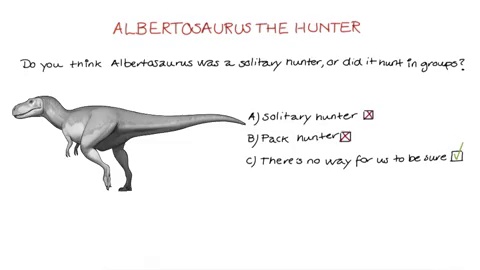 ALBERTOSAURUS THE HUNTER
Do you think Albertosaurus was a solitary hunter, or did it hunt in groups?
A) Solitary hunter
B) Pack hunter
C) There's no way for us to be sure